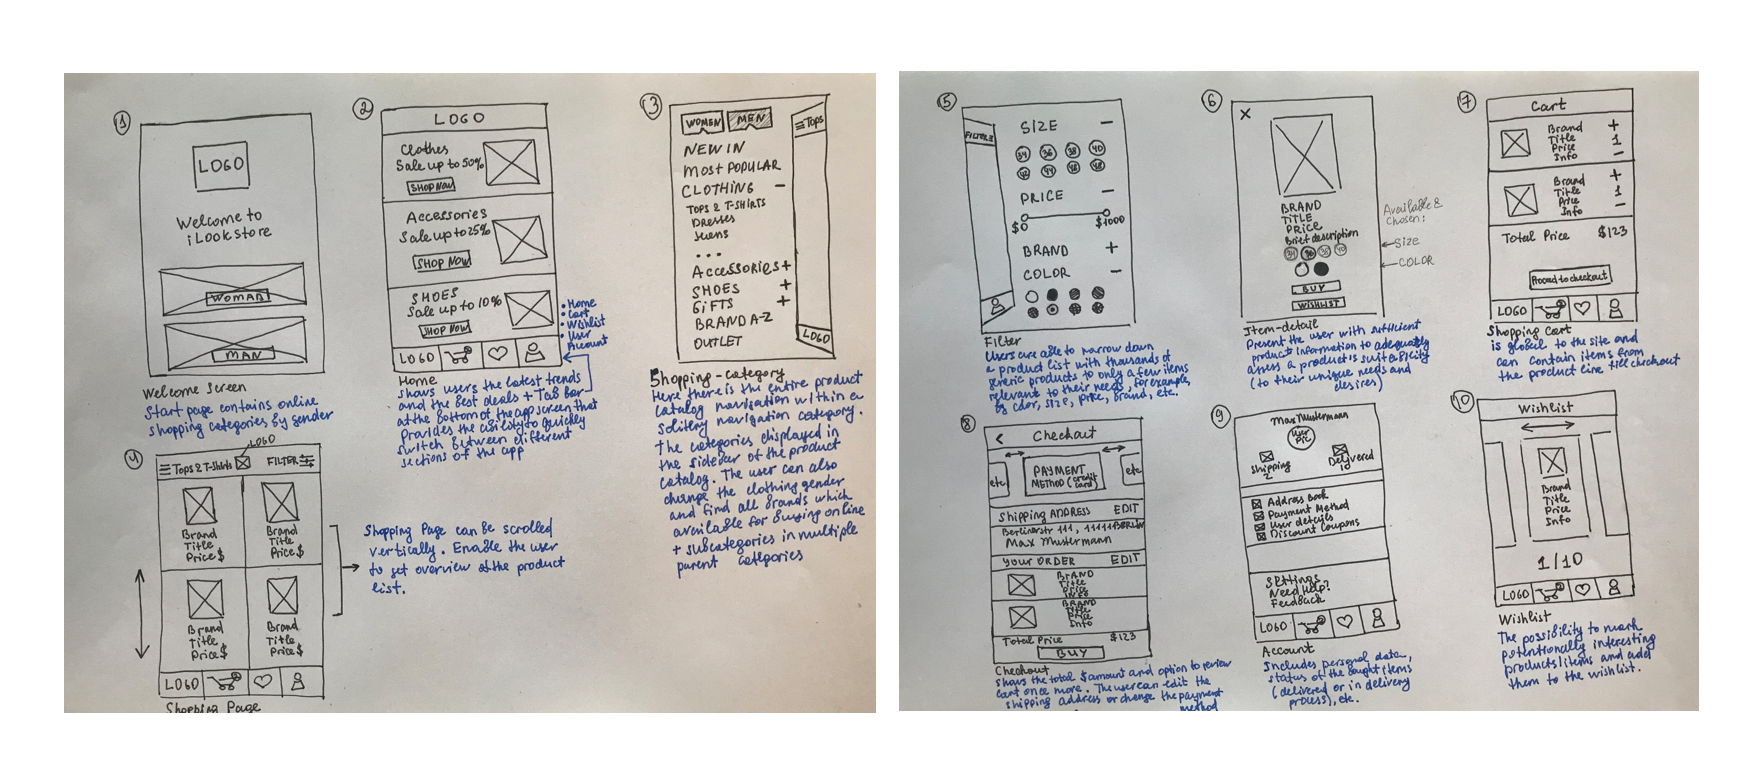 1
LOGO
Welcome to
iLookstore
WOMAN
MAN
Welcome Screen
Start page contains online
shopping categories by gender
2
LOGO
Clothes
Sale up to 50%
SHOP NOW
Accessories
Sale up to 25%
SHOP NOW
SHOES
Sale up to 10%
SHOP NOW
• Home
• Cart
• Wishlist
• User
Account
LOGO
Home
shows users the latest trends
and the best deals + Tab bar-
at the bottom of the app screen that
provides the ability to quickly
switch between different
sections of the app
3
WOMEN MEN
≡Tops
NEW IN
MOST POPULAR
CLOTHING −
TOPS & T-SHIRTS
DRESSES
JEANS
...
ACCESSORIES +
SHOES +
GIFTS +
BRAND A-Z
OUTLET
LOGO
Shopping-category
Here there is the entire product
catalog navigation within a
solitery navigation category.
The categories displayed in
the sidebar of the product
catalog. The user can also
change the clothing gender
and find all brands which
available for buying online
+ subcategories in multiple
parent categories
4
LOGO
≡ Tops & T-Shirts FILTER
Brand
Title
Price $
Brand
Title
Price $
Brand
Title
Price $
Brand
Title
Price $
LOGO
Shopping Page
Shopping Page can be scrolled
vertically. Enable the user
to get overview of the product
list.
5
FILTER
SIZE −
34 36 38 40
42 44 46 48
PRICE −
$0 $1000
BRAND +
COLOR −
Filter
Users are able to narrow down
a product list with thousands of
generic products to only a few items
relevant to their needs, for example,
by color, size, price, brand, etc.
6
X
BRAND
TITLE
PRICE
Brief description
34 36 38 40
BUY
WISHLIST
Available &
Chosen:
← Size
← COLOR
Item-detail
Present the user with sufficient
product information to adequately
assess a product is suitability
(to their unique needs and
desires)
7
Cart
Brand +
Title 1
Price
Info −
Brand +
Title 1
Price −
Info
Total Price $123
Proceed to checkout
LOGO
Shopping Cart
is global to the site and
can contain items from
the product line till checkout
8
< Checkout
etc
PAYMENT
METHOD (credit
card)
etc
Shipping ADDRESS EDIT
Berlinerstr 111, 11111 BERLIN
Max Mustermann
YOUR ORDER EDIT
BRAND
Title
Price
INFO
BRAND
Title
Price
Info
Total Price $123
BUY
Checkout
shows the total $amount and option to review
cart once more. The user can edit the
shipping address or change the payment
method
9
Max Mustermann
User
Pic
Shipping
2
Delivered
10
Address Book
Payment Method
User details
Discount Coupons
Settings
Need Help?
Feedback
LOGO
Account
Includes personal data,
status of the bought items
(delivered or in delivery
process), etc.
10
Wishlist
Brand
Title
Price
Info
1/10
LOGO
Wishlist
The possibility to mark
potentionally interesting
products/items and add
them to the wishlist.